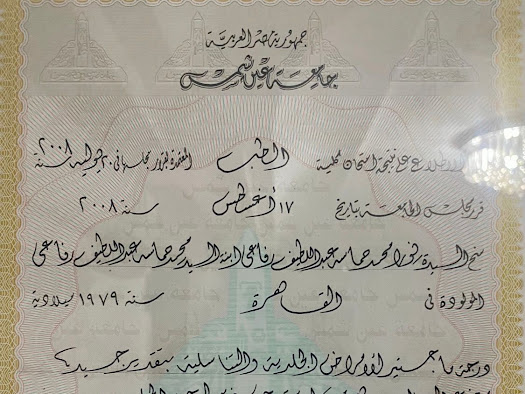 جمهورية مصر العربية
جامعة عين شمس
الاطلاع على نتيجة امتحان كلية الطب المعتمدة بقرار مجلس في يوليه سنة ٢٠٠٨
قرر مجلس الجامعة بتاريخ ١٧ أغسطس سنة ٢٠٠٨
منح السيدة محمد حماسه عبد اللطيف رفاعى ابنة السيد محمد حماسه عبد اللطيف رفاعى
المولودة فى القاهرة سنة ١٩٧٩ ميلادية
درجة ماجستير الأمراض الجلدية والتناسلية بتقدير جيد جدا